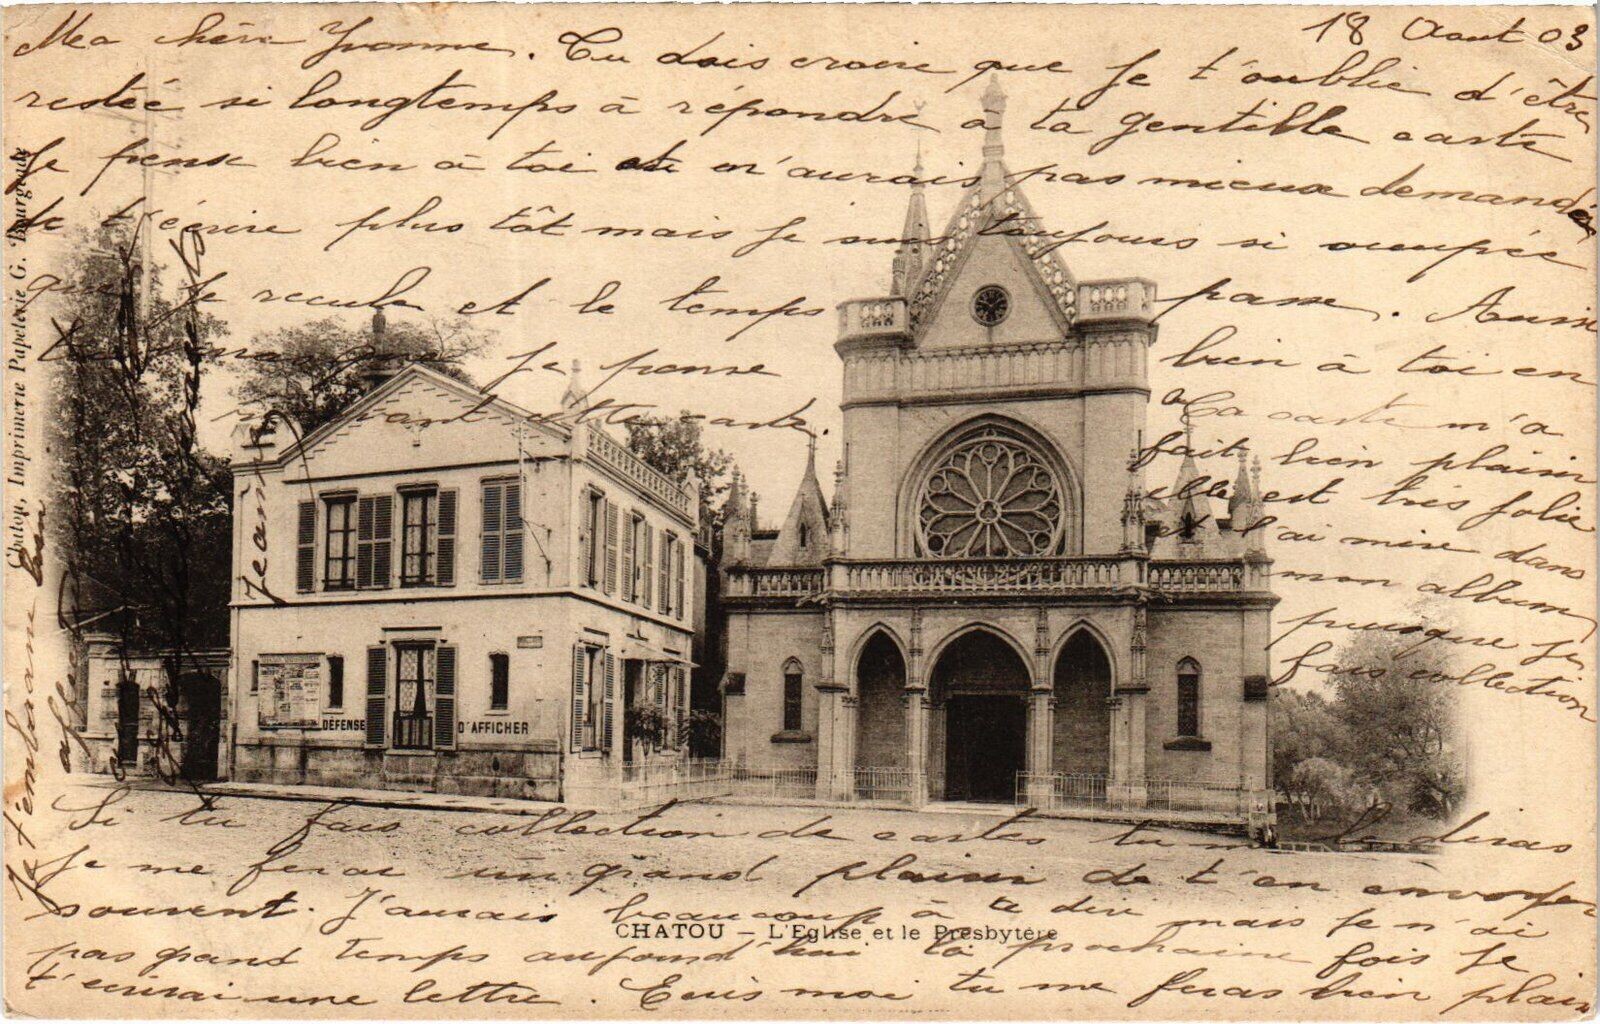 18 Aout 03
Ma chère Yvonne. Tu dois croire que je t'oublie d'être
restée si longtemps à répondre à ta gentille carte
Je pense bien à toi et n'aurais pas mieux demandé
de t'écrire plus tôt mais je suis toujours si occupée
que je recule et le temps passe. Aussi
tu vois que je pense bien à toi en
t'envoyant cette carte.
Ta carte m'a
fait bien plaisir
elle est très jolie
et l'ai mise dans
mon album
puisque je
fais collection
Si tu fais collection de cartes tu me le diras
je me ferai un grand plaisir de t'en envoyer
souvent. J'aurais beaucoup à te dire mais je n'ai
pas grand temps aujourd'hui la prochaine fois je
t'écrirai une lettre. Ecris moi tu me feras bien plaisir
Je t'embrasse bien
affect
Jeanne
DÉFENSE D'AFFICHER
CHATOU — L'Eglise et le Presbytère
Chatou, Imprimerie Papeterie G. Bourgeade